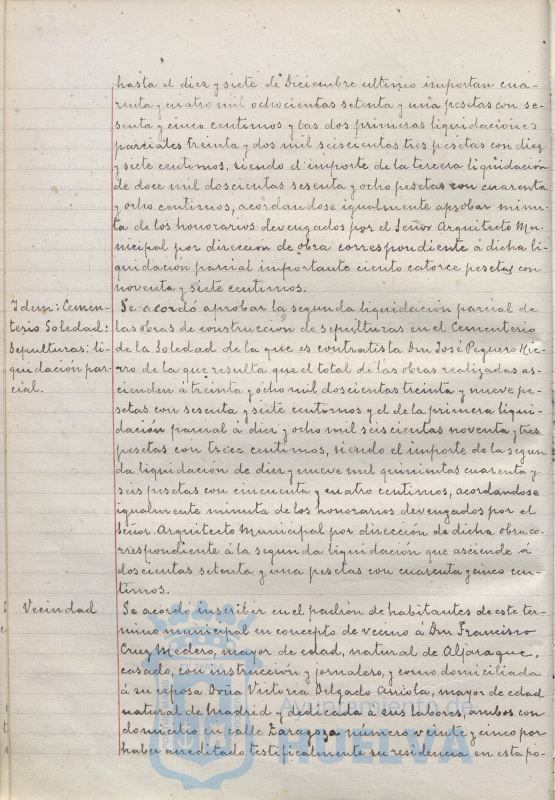 hasta el diez y siete de Diciembre ultimo importan cua-
renta y cuatro mil ochocientas setenta y una pesetas con se-
senta y cinco centimos y las dos primeras liquidaciones
parciales treinta y dos mil seiscientas tres pesetas con diez
y siete centimos, siendo el importe de la tercera liquidación
de doce mil doscientas sesenta y ocho pesetas con cuarenta
y ocho centimos, acordandose igualmente aprobar minu-
ta de los honorarios devengados por el Señor Arquitecto Mu-
nicipal por direccion de obra correspondiente á dicha li-
quidación parcial importante ciento catorce pesetas con
noventa y siete centimos.
Idem: Cemen-
terio Soledad:
Sepulturas: li-
quidación par-
cial.
Se acordó aprobar la segunda liquidación parcial de
las obras de construccion de sepulturas en el Cementerio
de la Soledad de la que es contratista Don José Peguero Hie-
rro de la que resulta que el total de las obras realizadas as-
cienden á treinta y ocho mil doscientas treinta y nueve pe-
setas con sesenta y siete centimos y el de la primera liqui-
dación parcial á diez y ocho mil seiscientas noventa y tres
pesetas con trece centimos, siendo el importe de la segun
da liquidación de diez y nueve mil quinientas cuarenta y
seis pesetas con cincuenta y cuatro centimos, acordandose
igualmente minuta de los honorarios devengados por el
Señor Arquitecto Municipal por dirección de dicha obra co-
rrespondiente á la segunda liquidación que asciende á
doscientas setenta y una pesetas con cuarenta y cinco cen-
timos.
Vecindad
Se acordó inscribir en el padrón de habitantes de este ter-
mino municipal en concepto de vecino á Don Francisco
Cruz Medero, mayor de edad, natural de Aljaraque,
casado, con instrucción y jornalero, y como domiciliada
á su esposa Doña Victoria Delgado Arriola, mayor de edad
natural de Madrid y dedicada á sus labores, ambos con
domicilio en calle Zaragoza número veinte y cinco por
haber acreditado testificalmente su residencia en esta po-
Ayuntamiento de
HUELVA